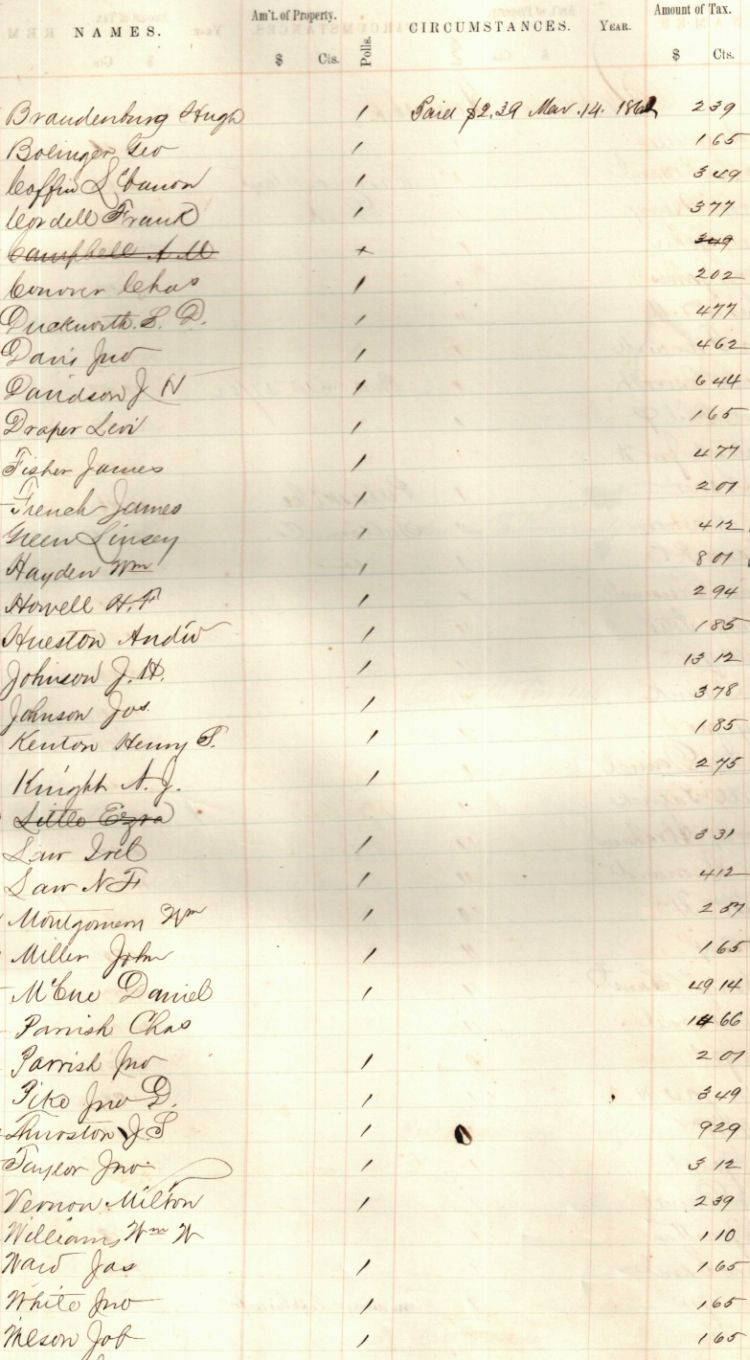 NAMES. Am't. of Property. Polls. CIRCUMSTANCES. YEAR. Amount of Tax.
$ Cts. $ Cts.
Brandenburg Hugh 1 Paid $2.39 Mar. 14. 1862 2 39
Bolinger Geo 1 1 65
Coffin 1 3 49
Cordell Frank 1 3 77
Campbell A M + 3 49
Conover Chas 1 2 02
Duckworth. S. D. 1 4 77
Davis Jno 1 4 62
Davidson J H 1 6 44
Draper Levi 1 1 65
Fisher James 1 4 77
French James 1 2 01
Green Linsey 1 4 12
Hayden Wm 1 8 01
Howell H. F 1 2 94
Hueston Andw 1 1 85
Johnson J. H. 1 13 12
Johnson Jos. 1 3 78
Kenton Henry S. 1 1 85
Knight A. J. 1 2 75
Little Ezra
Law 1 3 31
Law N F 1 4 12
Montgomery Wm 1 2 57
Miller John 1 1 65
McCue Daniel 1 49 14
Parrish Chas 66
Parrish Jno 1 2 01
Pike Jno D. 1 3 49
Thurston J S 1 9 29
Taylor Jno 1 3 12
Vernon Milton 1 2 39
Williams, Wm W 1 10
Ward Jas 1 1 65
White Jno 1 1 65
Wilson Job 1 1 65